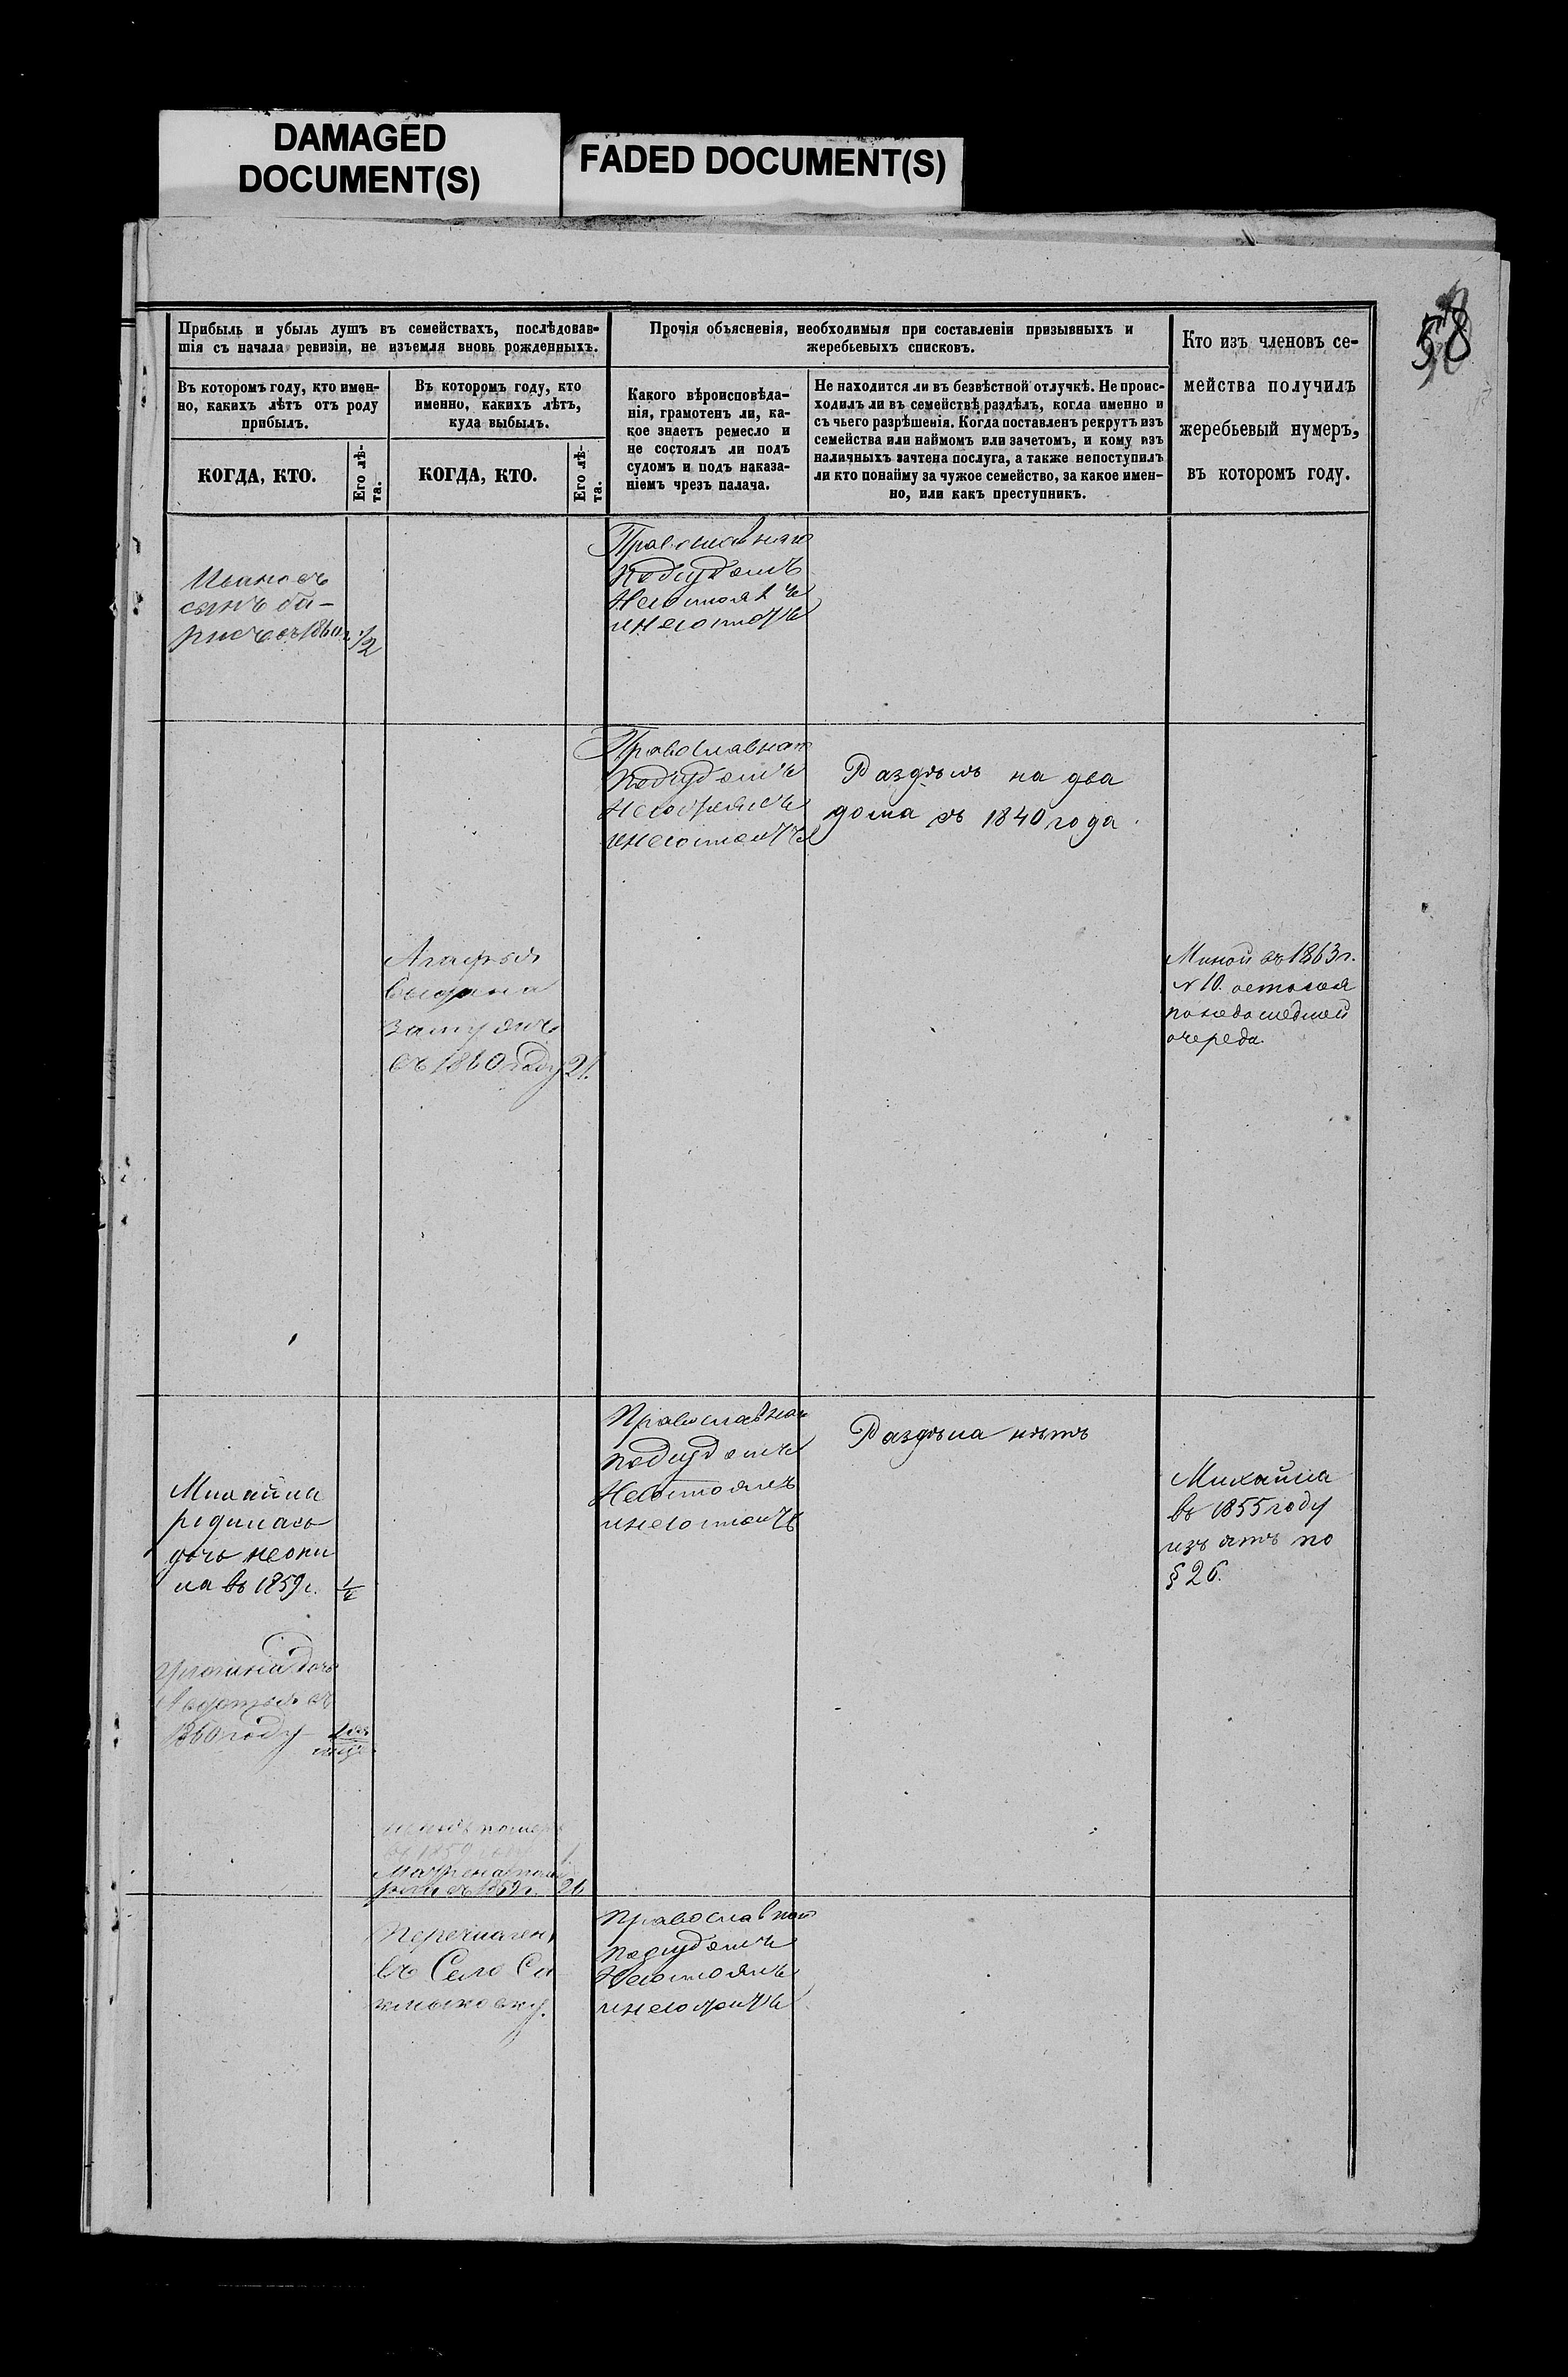 DAMAGED
DOCUMENT(S)
FADED DOCUMENT(S)
58
Прибыль и убыль душъ въ семействахъ, послѣдовав-
шія съ начала ревизіи, не изъемля вновь рожденныхъ.
Прочія объясненія, необходимыя при составленіи призывныхъ и
жеребьевыхъ списковъ.
Кто изъ членовъ се-
мейства получилъ
жеребьевый нумеръ,
въ которомъ году.
Въ которомъ году, кто имен-
но, какихъ лѣтъ отъ роду
прибылъ.
Въ которомъ году, кто
именно, какихъ лѣтъ,
куда выбылъ.
Какого вѣроисповѣда-
нія, грамотенъ ли, ка-
кое знаетъ ремесло и
не состоялъ ли подъ
судомъ и подъ наказа-
ніемъ чрезъ палача.
Не находится ли въ безвѣстной отлучкѣ. Не проис-
ходилъ ли въ семействѣ раздѣлъ, когда именно и
съ чьего разрѣшенія. Когда поставленъ рекрутъ изъ
семейства или наймомъ или зачетомъ, и кому изъ
наличныхъ зачтена послуга, а также непоступилъ
ли кто понайму за чужое семейство, за какое имен-
но, или какъ преступникъ.
КОГДА, КТО.
Его лѣ-
та.
КОГДА, КТО.
Его лѣ-
та.
сынъ
1/2
Православнаго
подсудомъ
Несостоялъ
инесостоитъ
Православнаго
подсудомъ
Несостоялъ
инесостоитъ
Раздѣлъ на два
дома съ 1840 года.
Агафья
выдана
замужъ
въ 1860 году 21.
Миной въ 1863 г.
№ 10. остался
по недошедшей
очереди.
Православнаго
подсудомъ
Несостоялъ
инесостоитъ
Раздѣла нѣтъ
Михайла
родилась
дочь
въ 1859 г. 1/2
Михайла
въ 1855 году
изъятъ по
§ 26.
дочь
въ
1860 году
померъ
въ 1859 1
26
Перечислен
въ Село
Православнаго
подсудомъ
Несостоялъ
инесостоитъ